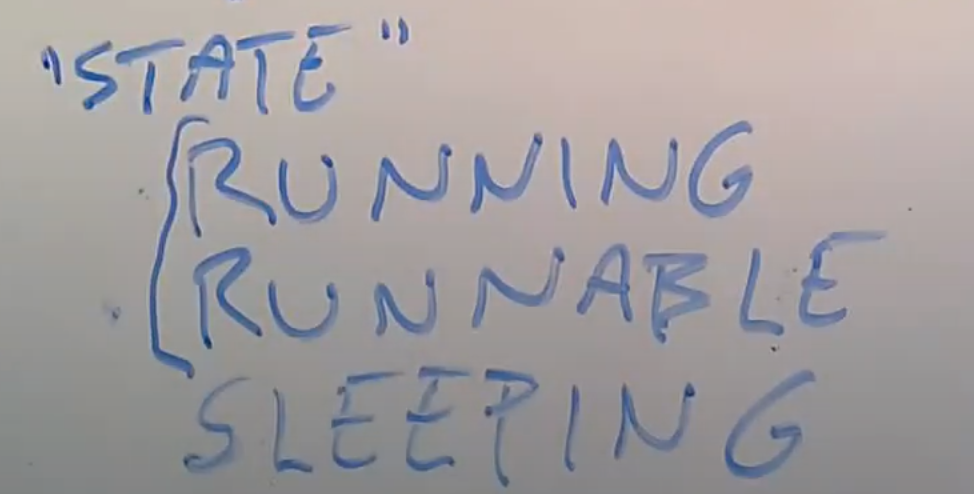 "STATE"
RUNNING
RUNNABLE
SLEEPING